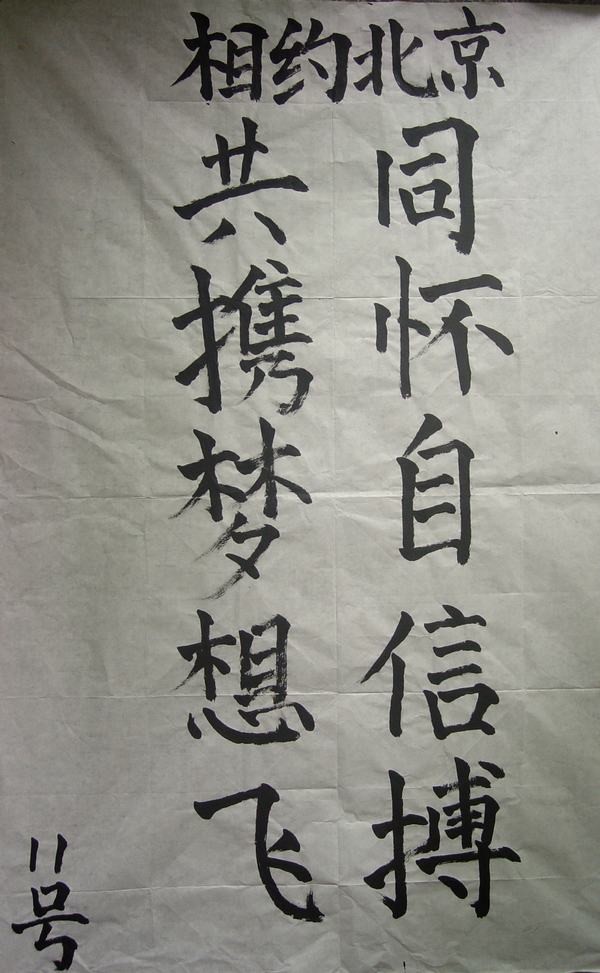 相约北京
同怀自信搏
共携梦想飞
11号